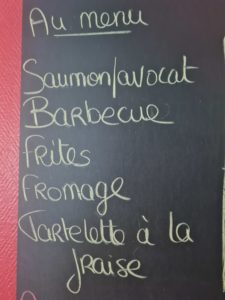 Au menu
Saumon/avocat
Barbecue
Frites
Fromage
Tartelette à la
fraise